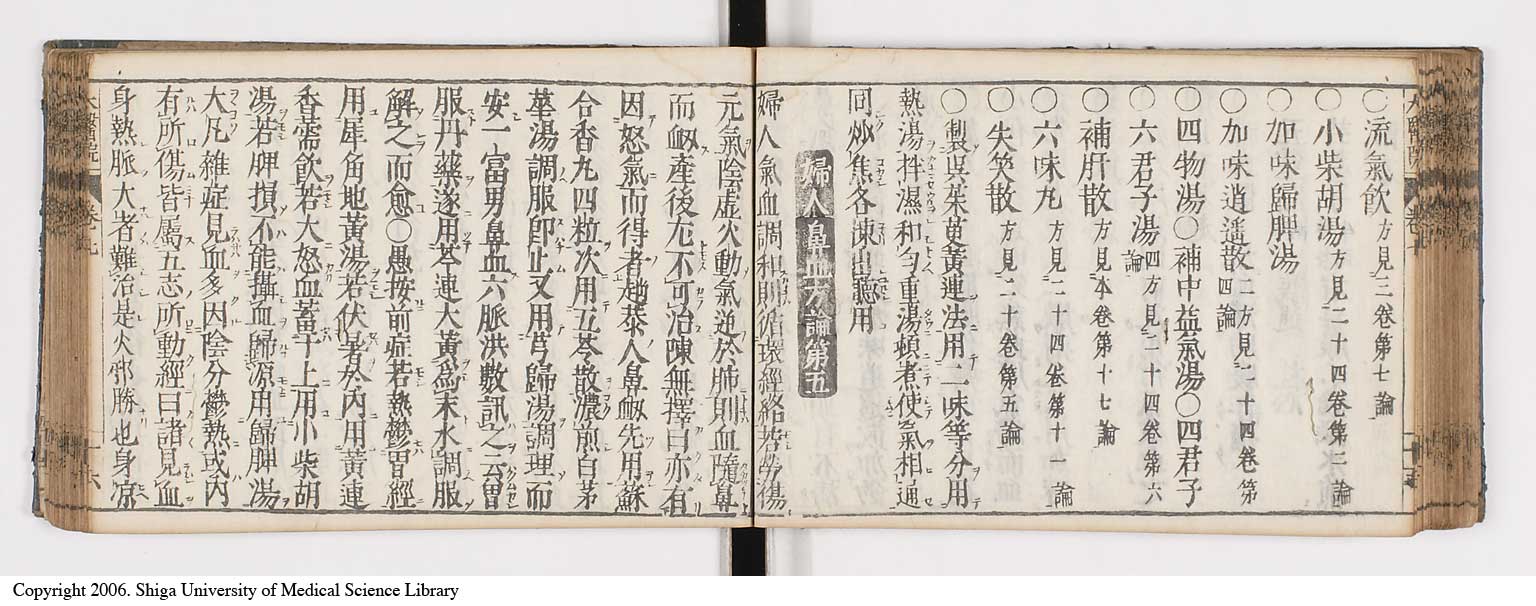 ○流氣飲方見二卷第七論
○小柴胡湯方見二十四卷第二論
○加味歸脾湯
○加味逍遙散二方見二十四卷第四論
○四物湯○補中益氣湯○四君子
○六君子湯四方見二十四卷第六論
○補肝散方見本卷第十七論
○六味丸方見二十四卷第十一論
○失笑散方見二十卷第五論
○製吳茱萸黃連法用二味等分用
熱湯拌濕和勻重湯頓煮使氣相通
同炒焦各揀出聽用
婦人鼻血方論第五
婦人氣血調和則循環經絡若勞傷
元氣陰虛火動氣逆於肺則血隨鼻
而衂產後尤不可治陳無擇曰亦有
因怒氣而得者趙恭人鼻衂先用蘇
合香丸四粒次用五苓散濃煎白茅
華湯調服卽止又用芎歸湯調理而
安一富男鼻血六脈洪數訊之云曽
服丹藥遂用芩連大黃爲末水調服
解之而愈○愚按前症若熱鬱胃經
用犀角地黃湯若伏暑於內用黃連
香薷飲若大怒血蓄于上用小柴胡
湯若脾損不能攝血歸源用歸脾湯
大凡雜症見血多因陰分鬱熱或內
有所傷皆屬五志所動經曰諸見血
身熱脈大者難治是火邪勝也身凉
卷七
十六
Copyright 2006. Shiga University of Medical Science Library